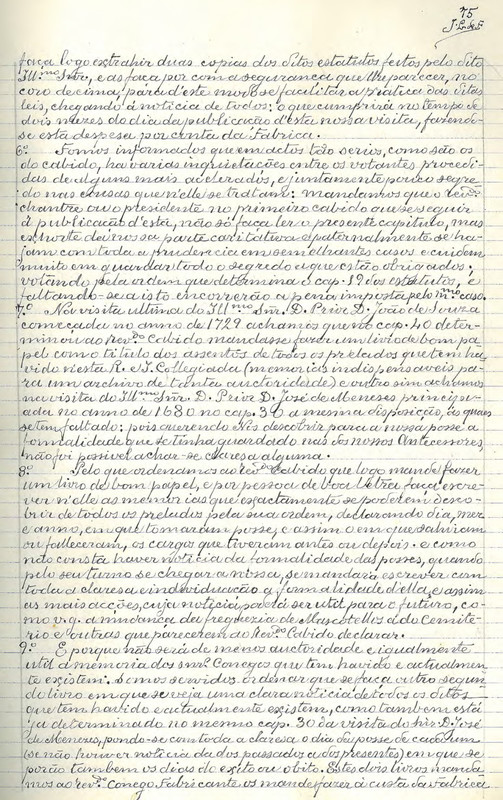 75
faça logo extrahir duas copias dos ditos estatutos feitos pelo dito
Ill.mo Snr., e as faça por com a segurança que lhe parecer, no
coro de cima, para d'este modo se facilitar a pratica das ditas
leis, chegando á noticia de todos: o que cumprirá no tempo de
dois mezes do dia da publicação d'esta nossa visita, fazendo-
se esta despesa por conta da Fabrica.
6.º Somos informados que em actos tão serios, como são os
do cabido, ha varias inquietações entre os votantes procedi-
das de alguns mais acelerados, e juntamente pouco segre-
do nas causas que n'elle se tratam: mandamos que o rev.do
chantre ou o presidente no primeiro cabido que se seguir
á publicação d'esta, não só faça ler o presente capitulo, mas
exhorte da nossa parte caritativa e paternalmente se ha-
jam com toda a prudencia em semelhantes casos e cuidem
muito em guardar todo o segredo a que estão obrigados,
votando pela ordem que determina o cap. 19 dos estatutos, e
faltando-se a isto encorrerão a pena imposta pelo m.mo caso.
7.º Na visita ultima do Ill.mo Snr. D. Prior D. João de Souza
começada no anno de 1729 achamos que no cap. 40 deter-
minou ao Rev.do Cabido mandasse fazer um livro de bom pa-
pel com o titulo dos assentos de todos os prelados que tem ha-
vido n'esta R. e I. Collegiada (memorias indispensaveis pa-
ra um archivo de tanta auctoridade) e outro sim achamos
na visita do Ill.mo Snr. D. Prior D. José de Menezes principi-
ada no anno de 1680 no cap. 30 a mesma disposição, ás quaes
se tem faltado: pois querendo Nós descobrir para a nossa posse a
formalidade que se tinha guardado nas dos nossos Antecessores,
não foi possivel achar-se claresa alguma.
8.º Pelo que ordenamos ao rev.do Cabido que logo mande fazer
um livro de bom papel, e por pessoa de boa letra faça escre-
ver n'elle as memorias que exactamente se poderem desco-
brir de todos os prelados pela sua ordem, declarando dia, mez
e anno, em que tomaram posse, e assim o em que sahiram
ou falleceram, os cargos que tiveram antes ou depois. e como
não consta haver noticia da formalidade das posses, quando
pelo seu turno se chegar a nossa, se mandará escrever com
toda a claresa e individuação a formalidade d'ella, e assim
as mais acções, cuja noticia poderá ser util para o futuro, co-
mo v.g. a mudança da freguezia de Mascotellos, a do Cemite-
rio e outras que parecerem ao Rev.do Cabido declarar.
9.º E porque não será de menos auctoridade e igualmente
util a memoria dos rev.dos Conegos que tem havido e actualmen-
te existem. Somos servidos ordenar que se faça outro segun-
do livro em que se veja uma clara noticia de todos os ditos
que tem havido e actualmente existem, como tambem está
já determinado no mesmo cap. 30 da visita do Snr. D. José
de Menezes, pondo-se com toda a claresa o dia da posse de cada um
(se não houver noticia da dos passados a dos presentes) em que se
porão tambem os dias do exito ou obito. Estes dois livros manda-
mos ao rev.do Conego Fabricante os mande fazer á custa da Fabrica